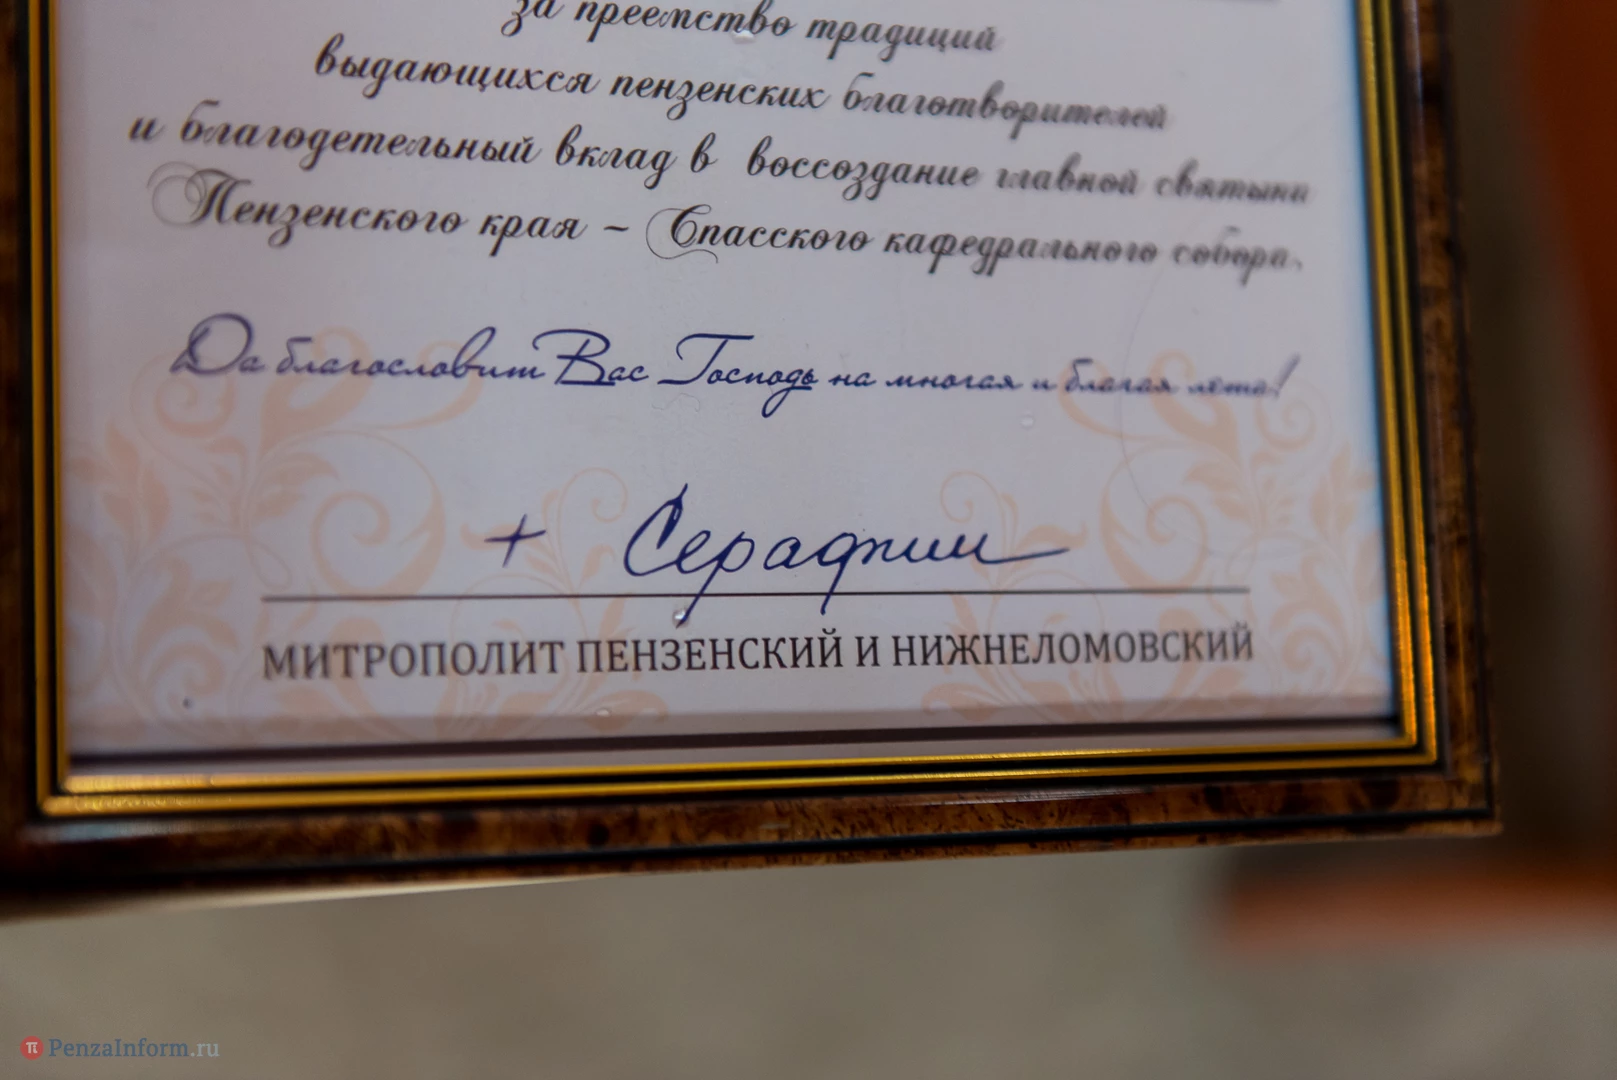 за преемство традиций
выдающихся пензенских благотворителей
и благодетельный вклад в воссоздание главной святыни
Пензенского края – Спасского кафедрального собора.
Да благословит Вас Господь на многая и благая лета!
+ Серафим
МИТРОПОЛИТ ПЕНЗЕНСКИЙ И НИЖНЕЛОМОВСКИЙ
PenzaInform.ru